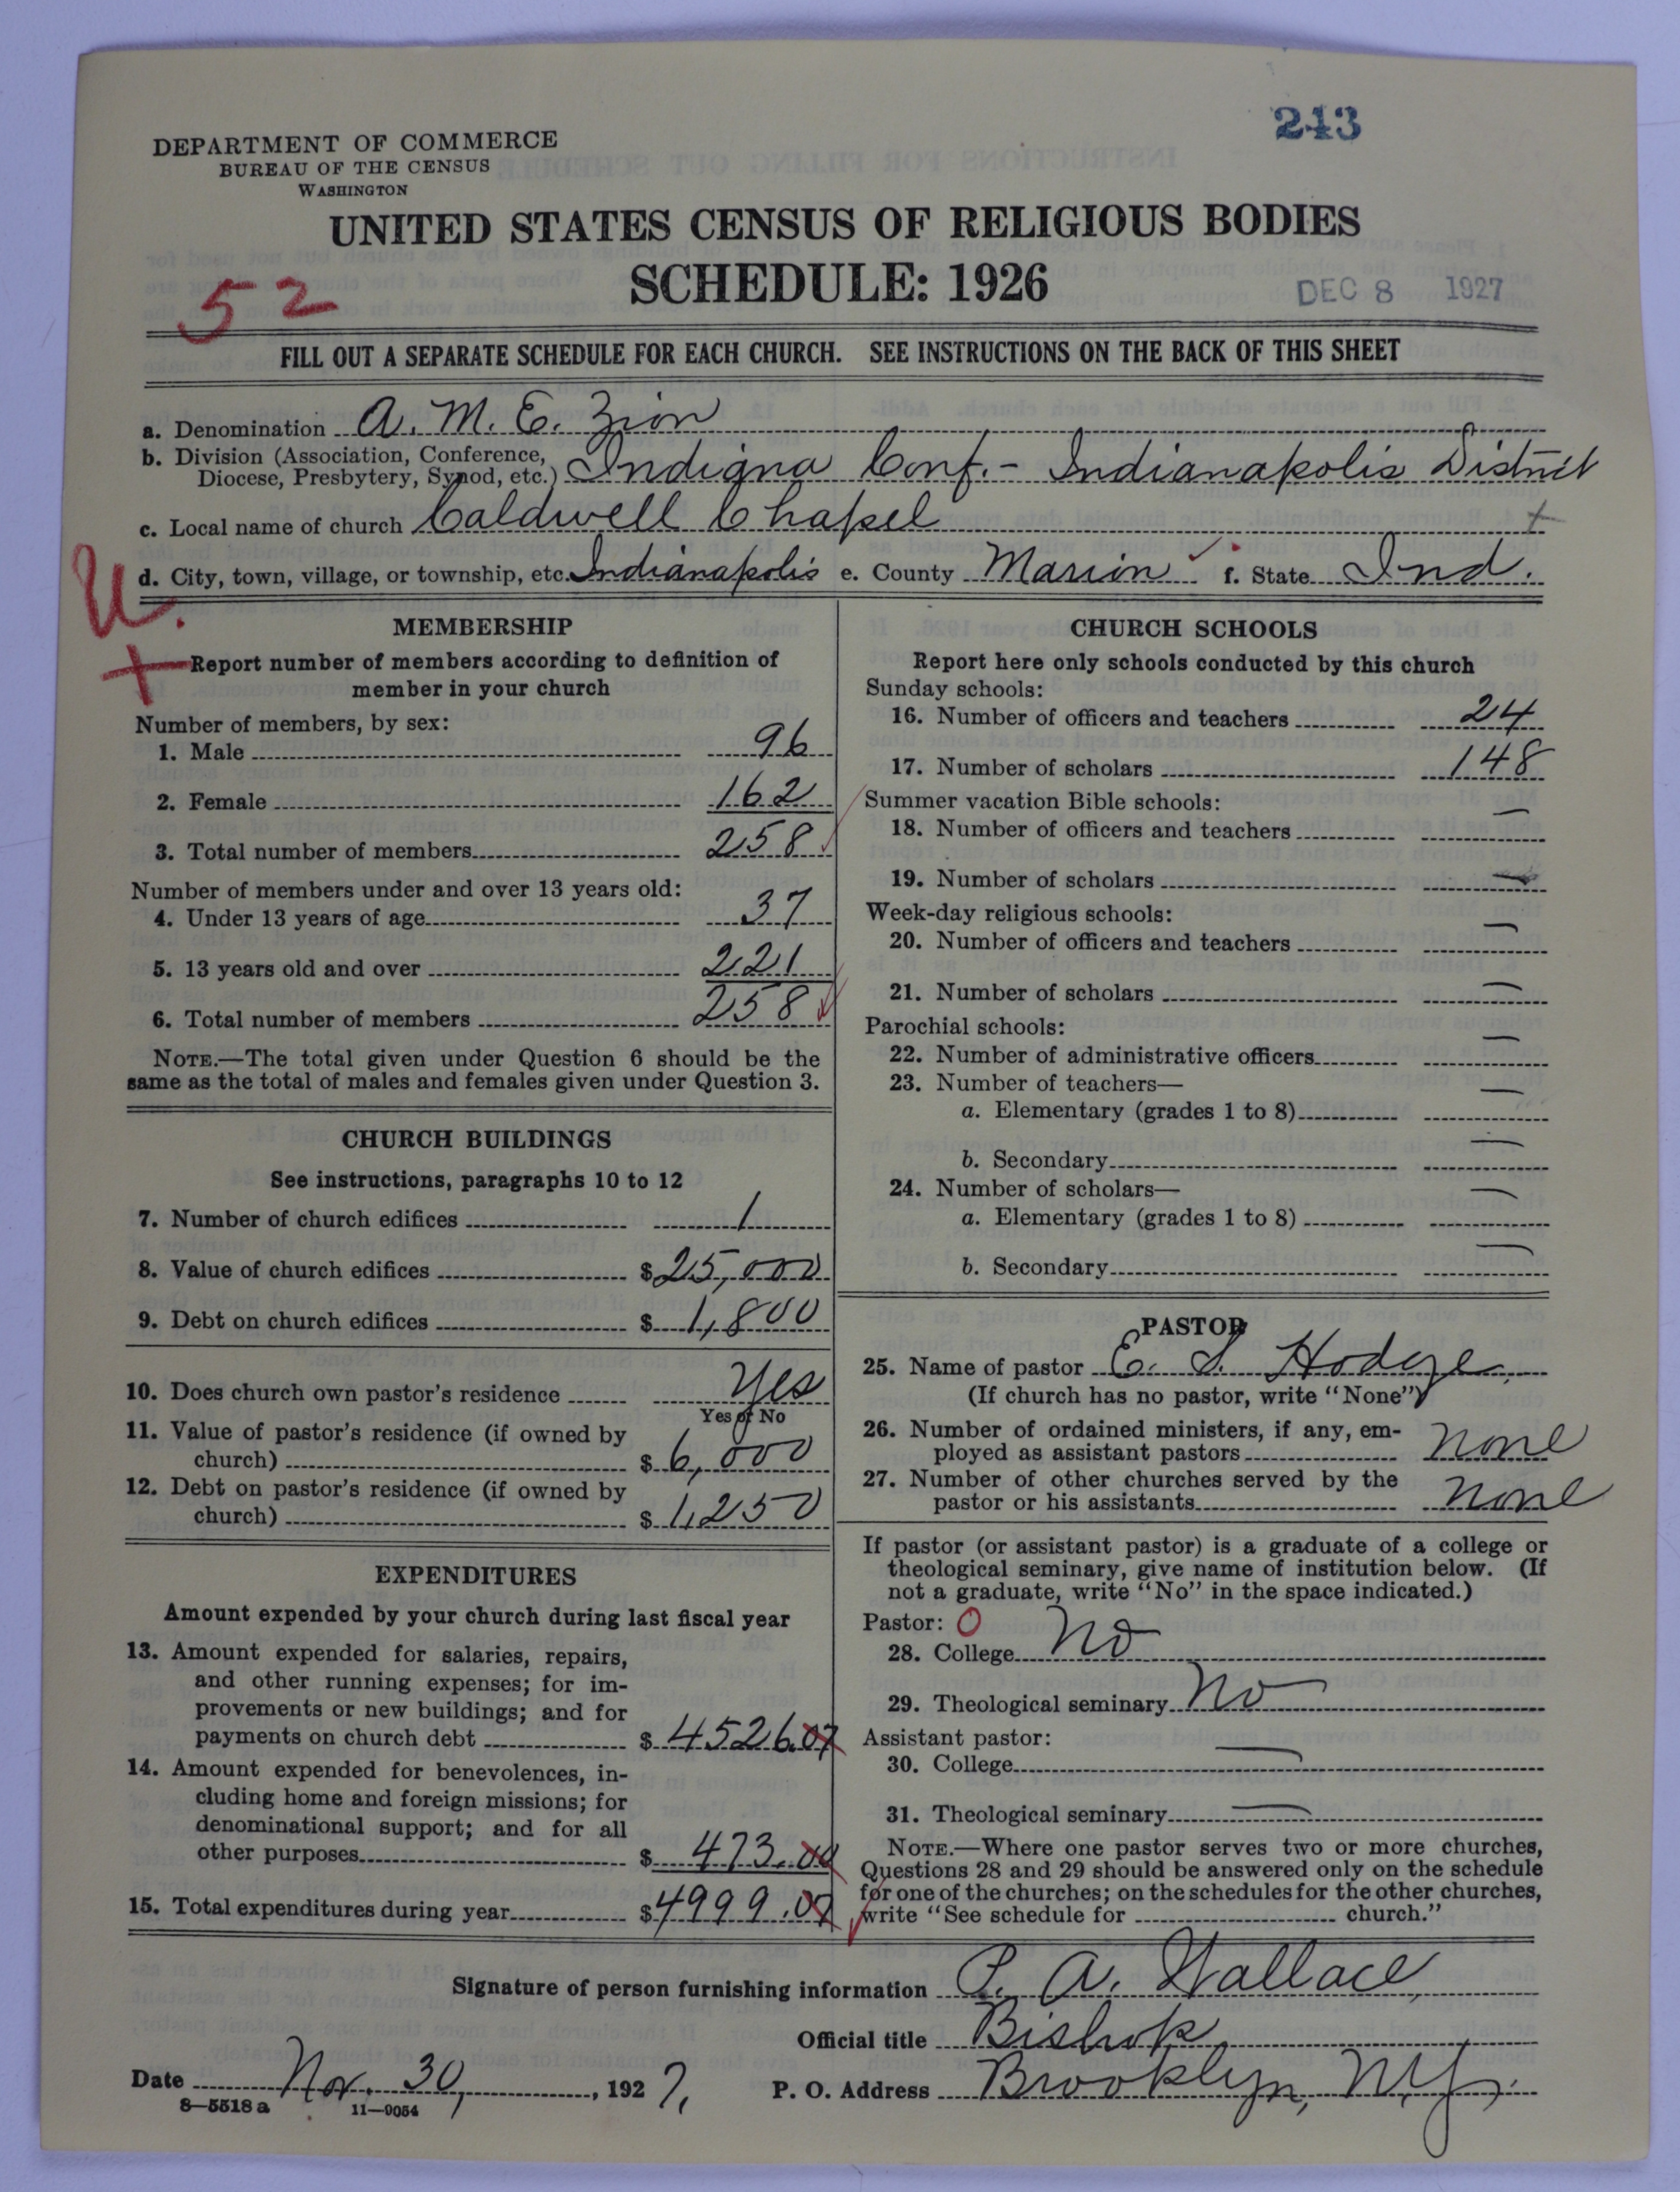 243
DEPARTMENT OF COMMERCE
BUREAU OF THE CENSUS
WASHINGTON
UNITED STATES CENSUS OF RELIGIOUS BODIES
SCHEDULE: 1926
DEC 8 1927
52
FILL OUT A SEPARATE SCHEDULE FOR EACH CHURCH. SEE INSTRUCTIONS ON THE BACK OF THIS SHEET
a. Denomination A. M. E. Zion
b. Division (Association, Conference, Diocese, Presbytery, Synod, etc.) Indiana Conf. - Indianapolis District
c. Local name of church Caldwell Chapel
d. City, town, village, or township, etc. Indianapolis e. County Marion f. State Ind.
U.
MEMBERSHIP
Report number of members according to definition of
member in your church
Number of members, by sex:
1. Male 96
2. Female 162
3. Total number of members 258
Number of members under and over 13 years old:
4. Under 13 years of age 37
5. 13 years old and over 221
6. Total number of members 258
NOTE.—The total given under Question 6 should be the
same as the total of males and females given under Question 3.
CHURCH BUILDINGS
See instructions, paragraphs 10 to 12
7. Number of church edifices 1
8. Value of church edifices $25,000
9. Debt on church edifices $ 1,800
10. Does church own pastor's residence Yes
Yes or No
11. Value of pastor's residence (if owned by
church) $ 6,000
12. Debt on pastor's residence (if owned by
church) $ 1,250
EXPENDITURES
Amount expended by your church during last fiscal year
13. Amount expended for salaries, repairs,
and other running expenses; for im-
provements or new buildings; and for
payments on church debt $ 4526.07
14. Amount expended for benevolences, in-
cluding home and foreign missions; for
denominational support; and for all
other purposes $ 473.00
15. Total expenditures during year $4999.07
CHURCH SCHOOLS
Report here only schools conducted by this church
Sunday schools:
16. Number of officers and teachers 24
17. Number of scholars 148
Summer vacation Bible schools:
18. Number of officers and teachers —
19. Number of scholars —
Week-day religious schools:
20. Number of officers and teachers —
21. Number of scholars —
Parochial schools:
22. Number of administrative officers —
23. Number of teachers—
a. Elementary (grades 1 to 8) —
b. Secondary —
24. Number of scholars—
a. Elementary (grades 1 to 8) —
b. Secondary —
PASTOR
25. Name of pastor E. S. Hodge
(If church has no pastor, write "None")
26. Number of ordained ministers, if any, em-
ployed as assistant pastors none
27. Number of other churches served by the
pastor or his assistants none
If pastor (or assistant pastor) is a graduate of a college or
theological seminary, give name of institution below. (If
not a graduate, write "No" in the space indicated.)
Pastor: O
28. College No
29. Theological seminary No
Assistant pastor:
30. College —
31. Theological seminary —
NOTE.—Where one pastor serves two or more churches,
Questions 28 and 29 should be answered only on the schedule
for one of the churches; on the schedules for the other churches,
write "See schedule for church."
Signature of person furnishing information P. A. Wallace,
Official title Bishop
Date Nov. 30, 1927, P. O. Address Brooklyn, N.Y.
8—5518 a 11—9054